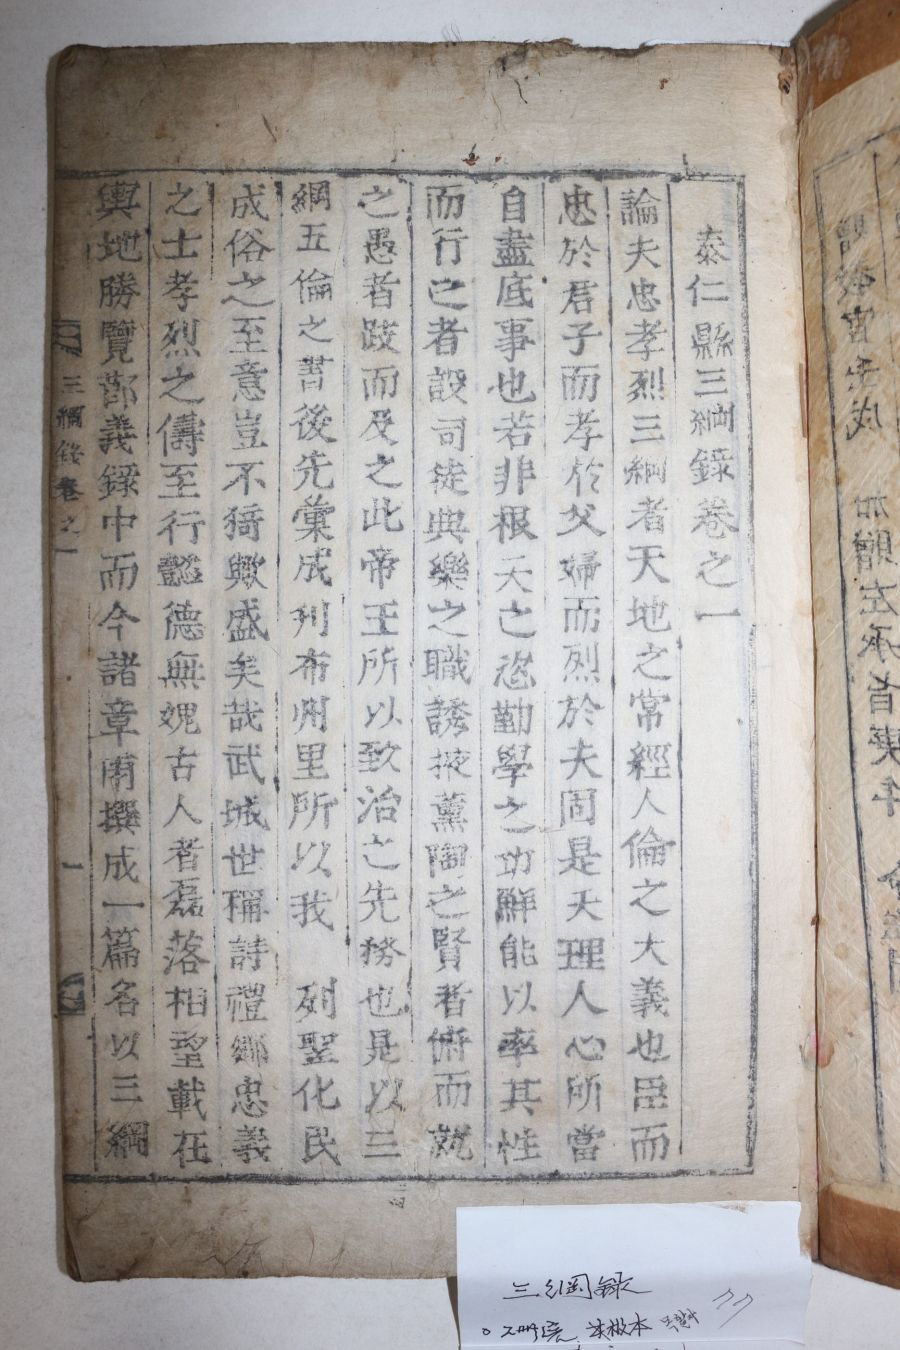 泰仁縣三綱錄卷之一
論夫忠孝烈三綱者天地之常經人倫之大義也臣而
忠於君子而孝於父婦而烈於夫固是天理人心所當
自盡底事也若非根天之姿勤學之功鮮能以率其性
而行之者設司徒典樂之職誘掖薰陶之賢者俯而就
之愚者跂而及之此帝王所以致治之先務也是以三
綱五倫之書後先彙成刊布州里所以我 列聖化民
成俗之至意豈不猗歟盛矣哉武城世稱詩禮鄉忠義
之士孝烈之儔至行懿德無媿古人者磊落相望載在
輿地勝覽鄒義錄中而今諸章甫撰成一篇名以三綱
三綱錄卷之一
一
三綱錄
木板本
贈
戌
加贈左承旨